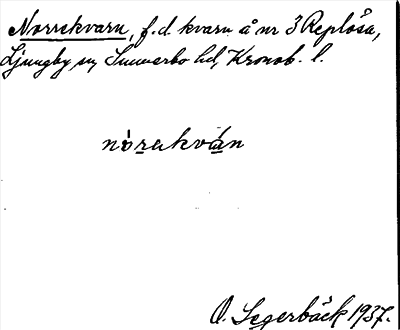 Norrekvarn, f.d. kvarn å nr 3 Replösa,
Ljungby sn, Sunnerbo hd, Kronob. l.
nòrakván
O. Segerbäck 1937.